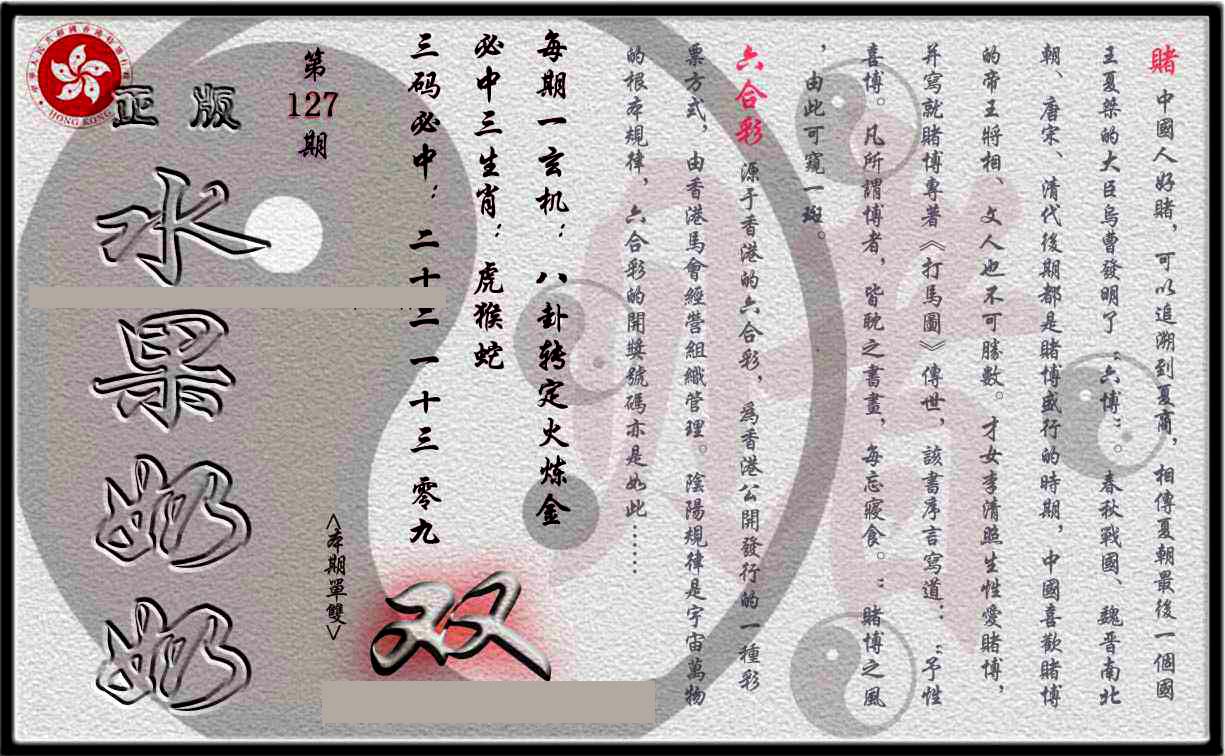 賭 中國人好賭，可以追溯到夏商，相傳夏朝最後一個國
王夏桀的大臣烏曹發明了“六博”。春秋戰國、魏晉南北
朝、唐宋、清代後期都是賭博盛行的時期，中國喜歡賭博
的帝王將相、文人也不可勝數。才女李清照生性愛賭博，
并寫就賭博專著《打馬圖》傳世，該書序言寫道：“予性
喜博。凡所謂博者，皆耽之書畫，每忘寢食。”賭博之風
，由此可窺一斑。
六合彩 源于香港的六合彩，為香港公開發行的一種彩
票方式，由香港馬會經營組織管理。陰陽規律是宇宙萬物
的根本規律，六合彩的開獎號碼亦是如此……
每期一玄机：八卦转定火炼金
必中三生肖：虎猴蛇
三码必中：二十二 一十三 零九
双
<本期單雙>
第127期
正版
水果奶奶
HONG KONG